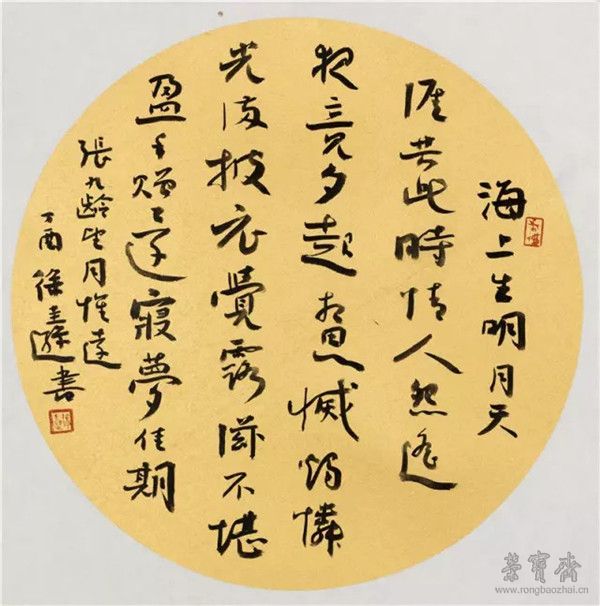 海上生明月天
涯共此時情人怨遙
夜竟夕起相思滅燭憐
光滿披衣覺露滋不堪
盈手贈還寢夢佳期
張九齡望月懷遠
丁酉 徐書
榮寶齋
www.rongbaozhai.cn